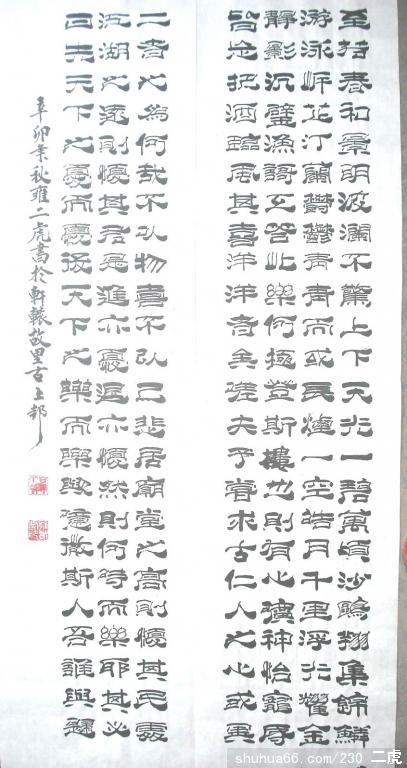 至若春和景明波瀾不驚上下天光一碧萬頃沙鷗翔集錦鱗
游泳岸芷汀蘭鬱鬱青青而或長煙一空皓月千里浮光耀金
靜影沉璧漁謌互答此樂何極登斯樓也則有心曠神怡寵辱
皆忘把酒臨風其喜洋洋者矣嗟夫予嘗求古仁人之心或異
二者之為何哉不以物喜不以己悲居廟堂之高則憂其民處
江湖之遠則憂其君是進亦憂退亦憂然則何時而樂耶其必
曰先天下之憂而憂後天下之樂而樂歟噫微斯人吾誰與歸
辛卯秋雍二虎書於軒轅故里古上郡
shuhua66.com/230 二虎